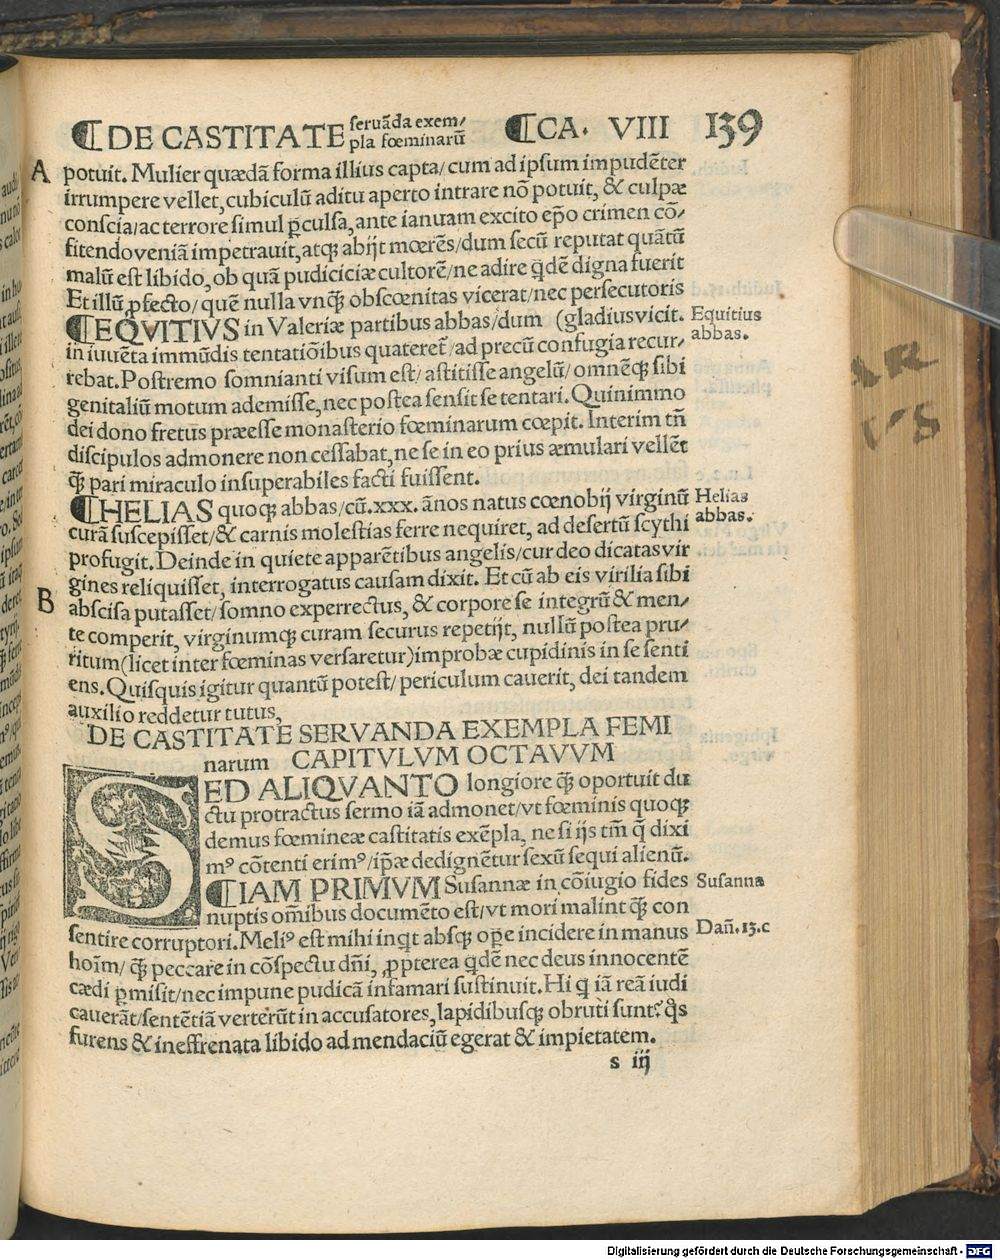 ¶DE CASTITATE ſeruāda exem/
pla fœminarū ¶CA. VIII 139
A potuit. Mulier quædā forma illius capta/ cum ad ipſum impudēter
irrumpere vellet, cubiculū aditu aperto intrare nō potuit, & culpæ
conſcia/ac terrore ſimul ꝑculſa, ante ianuam excito ep̄o crimen cō/
fitendo veniā impetrauit, atqꝫ abijt mœrēs/dum ſecū reputat quātū
malū eſt libido, ob quā pudiciciæ cultorē/ne adire q̄dē digna fuerit
Et illū ꝓfecto/ quē nulla vnqꝫ obſcœnitas vicerat/nec perſecutoris
¶EQVITIVS in Valeriæ partibus abbas/dum (gladius vicit. Equitius
abbas.
in iuuēta immūdis tentatiōibus quateret̄/ad precū confugia recur-
rebat. Poſtremo ſomnianti viſum eſt/ aſtitiſſe angelū/ omnēqꝫ ſibi
genitaliū motum ademiſſe, nec poſtea ſenſit ſe tentari. Quinimmo
dei dono fretus præeſſe monaſterio fœminarum cœpit. Interim tn̄
diſcipulos admonere non ceſſabat, ne ſe in eo prius æmulari vellēt
q̄ꝫ pari miraculo inſuperabiles facti fuiſſent.
¶HELIAS quoqꝫ abbas/cū.xxx. ānos natus cœnobij virginū Helias
abbas.
curā ſuſcepiſſet/& carnis moleſtias ferre nequiret, ad deſertū ſcythi
profugit. Deinde in quiete apparētibus angelis/cur deo dicatas vir
gines reliquiſſet, interrogatus cauſam dixit. Et cū ab eis virilia ſibi
B abſciſa putaſſet/ſomno experrectus, & corpore ſe integrū & men/
te comperit, virginumqꝫ curam ſecurus repetijt, nullū poſtea pru/
ritum(licet inter fœminas verſaretur)improbæ cupidinis in ſe ſenti
ens. Quiſquis igitur quantū poteſt/ periculum cauerit, dei tandem
auxilio reddetur tutus,
DE CASTITATE SERVANDA EXEMPLA FEMI
narum CAPITVLVM OCTAVVM
SED ALIQVANTO longiore q̄ꝫ oportuit du
ctu protractus ſermo iā admonet/vt fœminis quoqꝫ
demus fœmineæ caſtitatis exēpla, ne ſi ijs tm̄ q̄ dixi
mꝰ cōtenti erimꝰ/ip̄æ dedignētur ſexū ſequi alienū.
¶IAM PRIMVM Suſannæ in cōiugio fides Suſanna
nuptis om̄ibus documēto eſt/vt mori malint q̄ꝫ con
ſentire corruptori. Meliꝰ eſt mihi inq̄t abſqꝫ op̄e incidere in manus Dan̄.13.c
hoīm/ q̄ꝫ peccare in cōſpectu dn̄i, ꝓpterea q̄dē nec deus innocentē
cædi ꝑmiſit/nec impune pudicā infamari ſuſtinuit. Hi q̄ iā reā iudi
cauerāt/ſentētiā verterūt in accuſatores, lapidibuſqꝫ obruti ſunt? q̄s
furens & ineffrenata libido ad mendaciū egerat & impietatem.
s iij
Digitalisierung gefördert durch die Deutsche Forschungsgemeinschaft - DFG